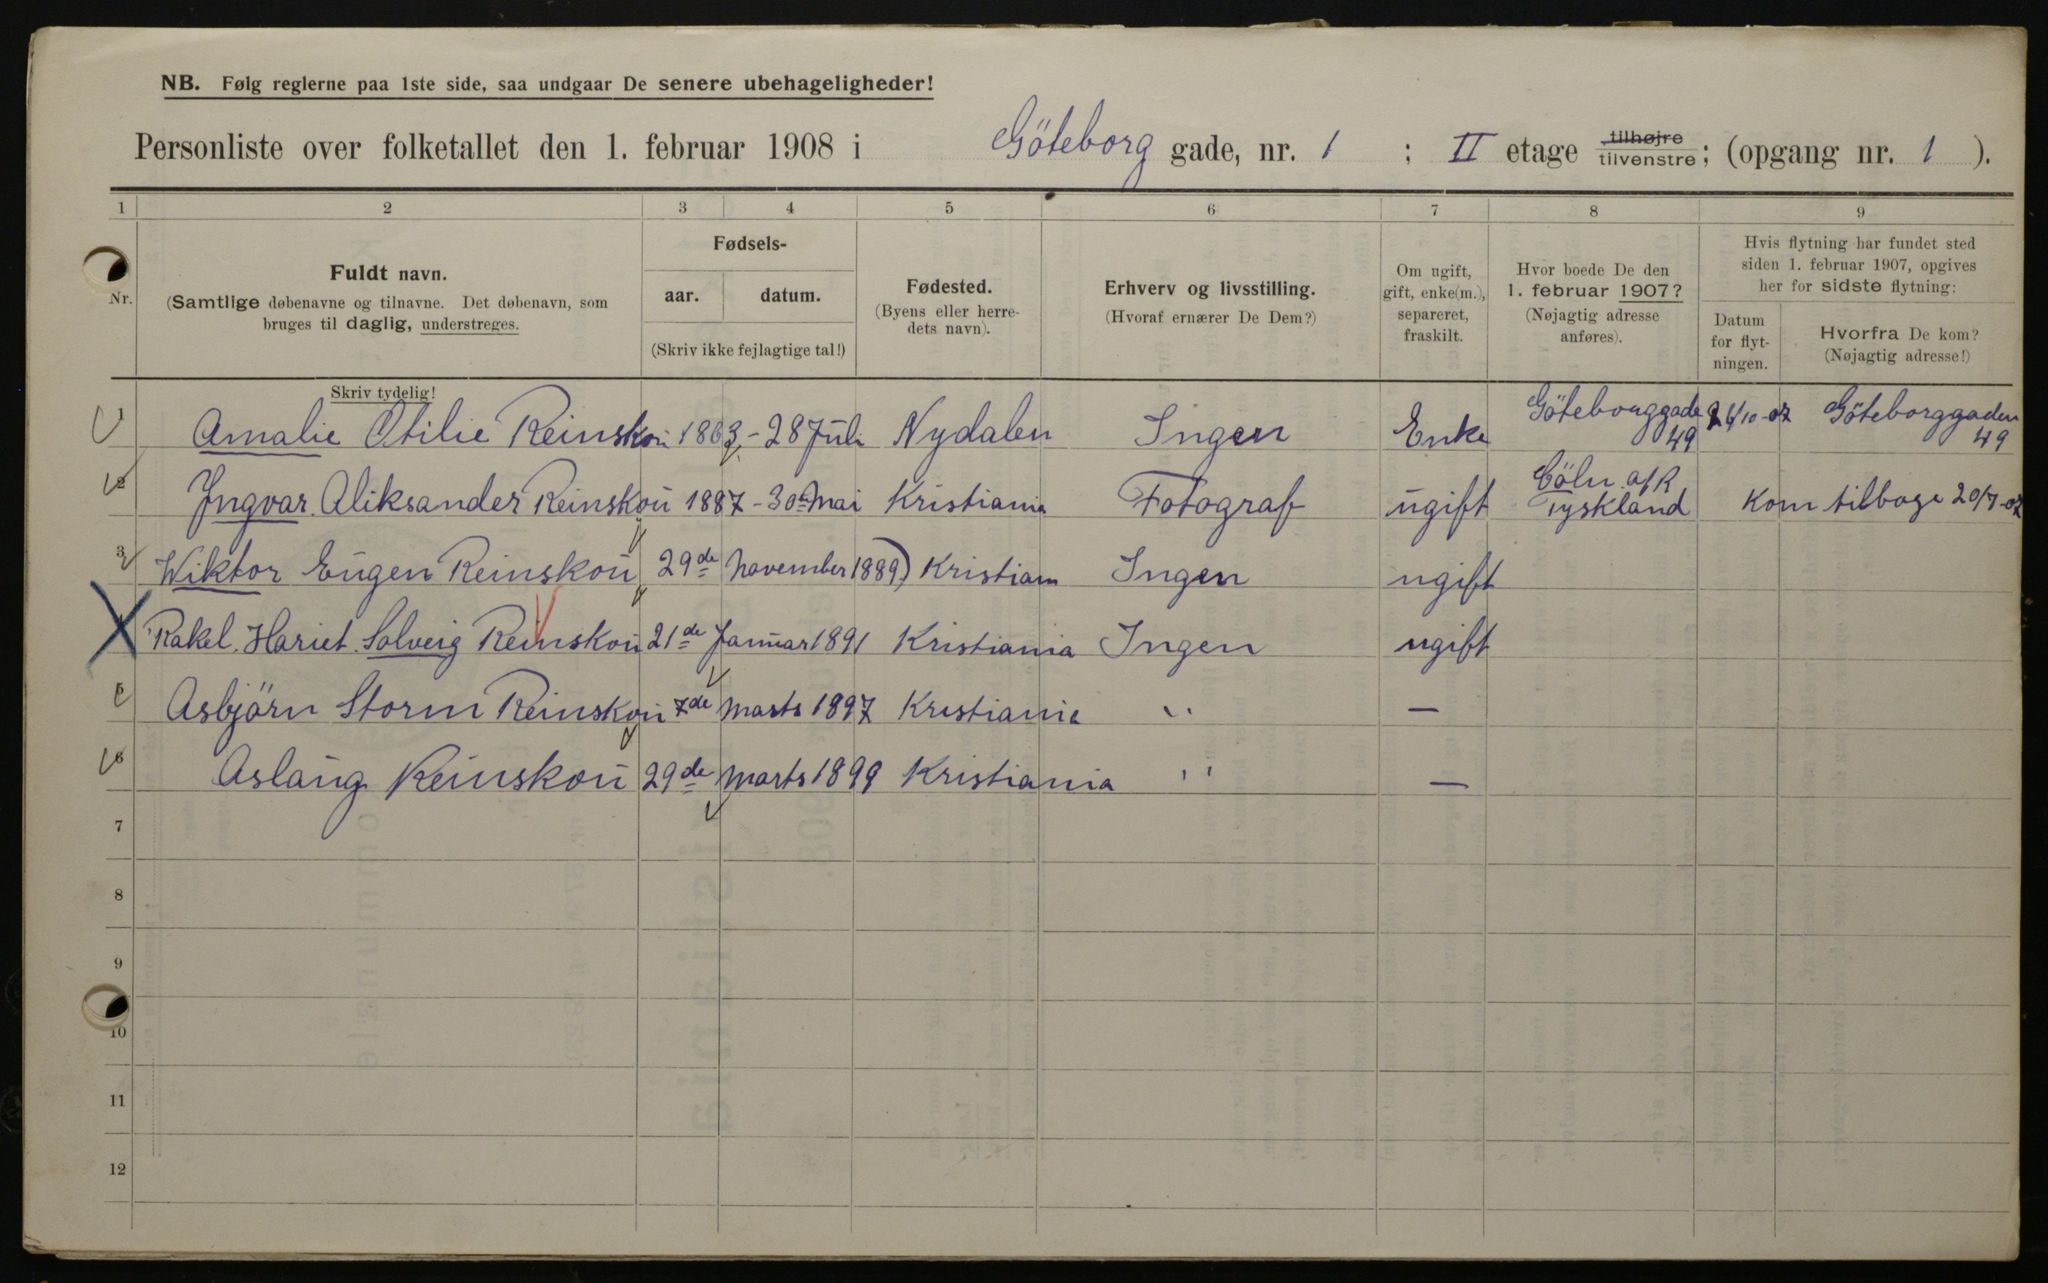 NB. Følg reglerne paa 1ste side, saa undgaar De senere ubehageligheder!
Personliste over folketallet den 1. februar 1908 i Göteborg gade, nr. 1 ; II etage tilhøjre tilvenstre; (opgang nr. 1 ).
1 2 3 4 5 6 7 8 9
Nr.
Fuldt navn.
(Samtlige døbenavne og tilnavne. Det døbenavn, som
bruges til daglig, understreges.
Fødsels-
aar. datum.
(Skriv ikke fejlagtige tal!)
Fødested.
(Byens eller herre-
dets navn).
Erhverv og livsstilling.
(Hvoraf ernærer De Dem?)
Om ugift,
gift, enke(m.),
separeret,
fraskilt.
Hvor boede De den
1. februar 1907?
(Nøjagtig adresse
anføres).
Hvis flytning har fundet sted
siden 1. februar 1907, opgives
her for sidste flytning:
Datum
for flyt-
ningen.
Hvorfra De kom?
(Nøjagtig adresse!)
Skriv tydelig!
1 Amalie Otilie Reinskou 1863 - 28 Juli Nydalen Ingen Enke Göteborggade 49 /10-07 Göteborggaden 49
2 Ingvar Aliksander Reinskou 1887 - 30te Mai Kristiania Fotograf ugift Cöln a/R Tyskland Kom tilbage 20/7-07
3 Wiktor Eugen Reinskou 29de November 1889) Kristiania Ingen ugift
Rakel. Hariet. Solveig Reinskou 21de Januar 1891 Kristiania Ingen ugift
5 Asbjörn Storm Reinskou 7de Marts 1897 Kristiania " —
6 Aslaug Reinskou 29de Marts 1899 Kristiania " —
7
8
9
10
11
12